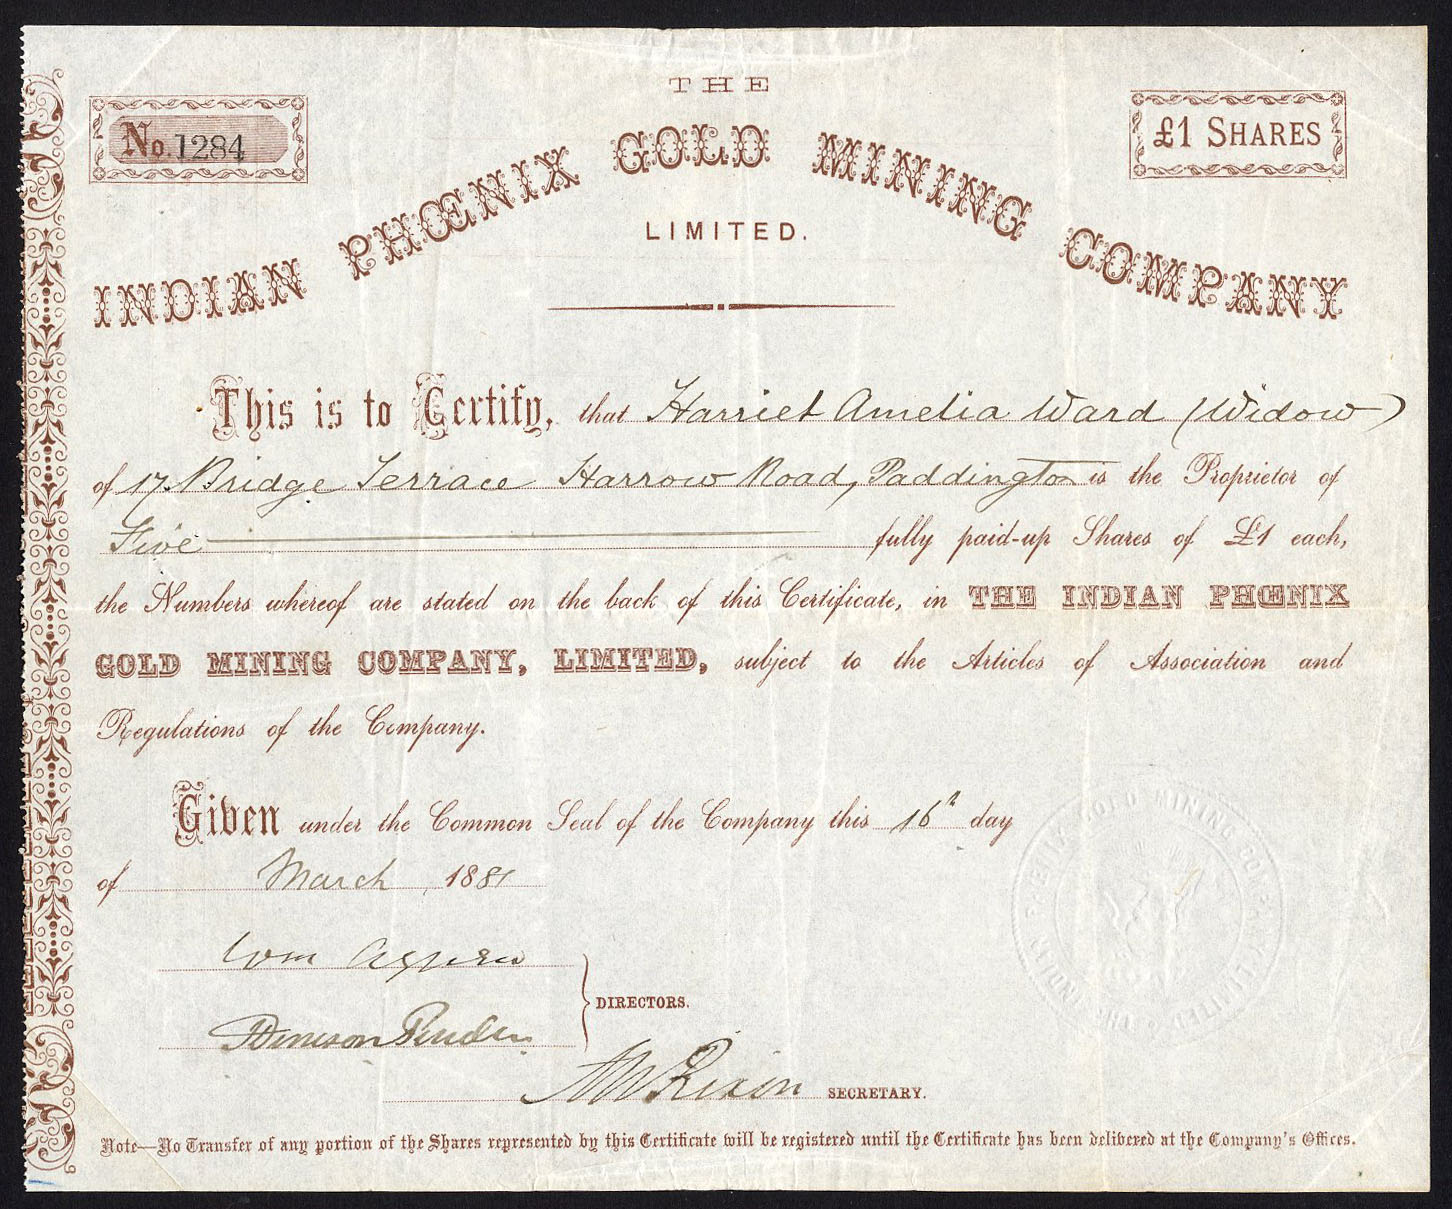 THE
No. 1284
£1 SHARES
INDIAN PHŒNIX GOLD MINING COMPANY
LIMITED.
This is to Certify, that Harriet Amelia Ward (Widow)
of 17 Bridge Terrace Harrow Road, Paddington is the Proprietor of
Five fully paid-up Shares of £1 each,
the Numbers whereof are stated on the back of this Certificate, in THE INDIAN PHŒNIX
GOLD MINING COMPANY, LIMITED, subject to the Articles of Association and
Regulations of the Company.
Given under the Common Seal of the Company this 16th day
of March 1881
Wm
DIRECTORS.
Denison
SECRETARY.
Note—No Transfer of any portion of the Shares represented by this Certificate will be registered until the Certificate has been delivered at the Company's Offices.
THE INDIAN PHŒNIX GOLD MINING COMPANY LIMITED